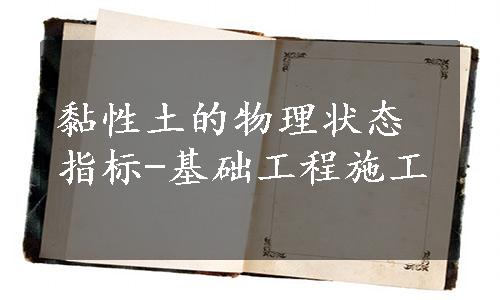 黏性土的物理状态
指标-基础工程施工